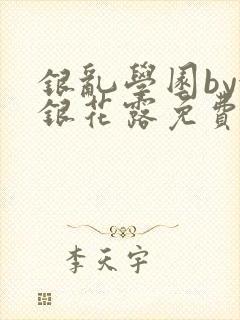 銀亂學園by
銀花露免費
李天宇